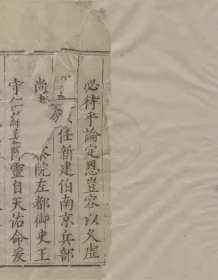 必待乎論定恩豈容以久虛
任新建伯南京兵部
尚
察院左都御史王
守仁
靈自天佑命爰